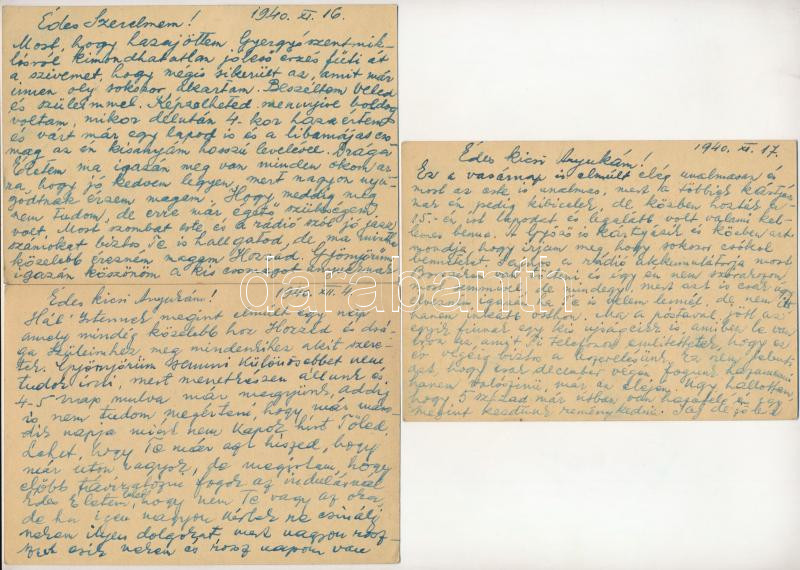 1940. XI. 16.
Édes Szerelmem!
Most, hogy hazajöttem Gyergyószentmik-
lósról kimondhatatlan jóleső érzés fűti át
a szivemet, hogy mégis sikerült az, amit már
innen oly sokszor akartam. Beszéltem veled
és szüleimmel. Képzelheted mennyire boldog
voltam, mikor délután 4-kor haza értem
és várt már egy lapod is és a libamájas cso
mag az én kisanyám hosszú levelével. Drága
Életem ma igazán meg van minden okom ar
ra, hogy jó kedvem legyen, mert nagyon nyu-
godtnak érzem magam. Hogy meddig még
nem tudom, de erre már égető szükségem
volt. Most szombat este és a rádió szól jó jazz
számokat biztos Te is hallgatod, de ma mintha
közelebb érezném magam Hozzád. Gyönyörűm
igazán köszönöm a kis csomagot
1940. XII. 4.
Édes kicsi Anyukám!
Hál' Istennek megint elmúlt egy nap
amely mindég közelebb hoz Hozzád és drá-
ga szüleimhez meg mindenkihez akit szere-
tek. Gyönyörűm semmi különösebbet nem
tudok írni, mert menetkészen állunk és
4-5 nap mulva már megyünk, addig
is nem tudom megérteni, hogy már má
dik napja miért nem kapok hírt Tőled
Lehet, hogy Te már azt hiszed, hogy
már uton vagyok, de megírtam, hogy
előbb táviratozni fogok az indulásnál
Édes Életem lehet, hogy nem Te vagy az oka,
de ha igen nagyon kérlek ne csinálj
nekem ilyen dolgokat, mert nagyon rosz
esik nekem és rossz napom van
1940. XI. 17.
Édes kicsi Anyukám!
Ez a vasárnap is elmúlt elég unalmasan és
most az este is unalmas, mert a többiek kártyáz
nak én pedig kibicelek, de közben hozták a
15.-én írt lapodat és legalább volt valami kel-
lemes benne. A Győző is kártyázik és közben azt
mondja, hogy írjam meg, hogy sokszor csókol
benneteket. Sajnos a rádió akkumulátorja most
és így én nem szórakozom
de mindegy, mert azt is csak úgy
élvezném igazán ha Te is velem lennél, de nem itt
hanem otthon. Ma a postával jött az
egyik fiúnak egy kis ujságcikk is, amiben le van
írva az, amit Ti telefonon említettetek, hogy ez
év végéig biztos a leszerelésünk. Ez nem jelenti
azt, hogy csak december végén fogunk hazamenni
hanem valószínű, már az elején. Úgy hallottam,
hogy 5 század már útban van hazafelé és így
megint kezdünk reménykedni. Jaj de jó lesz
darabanth